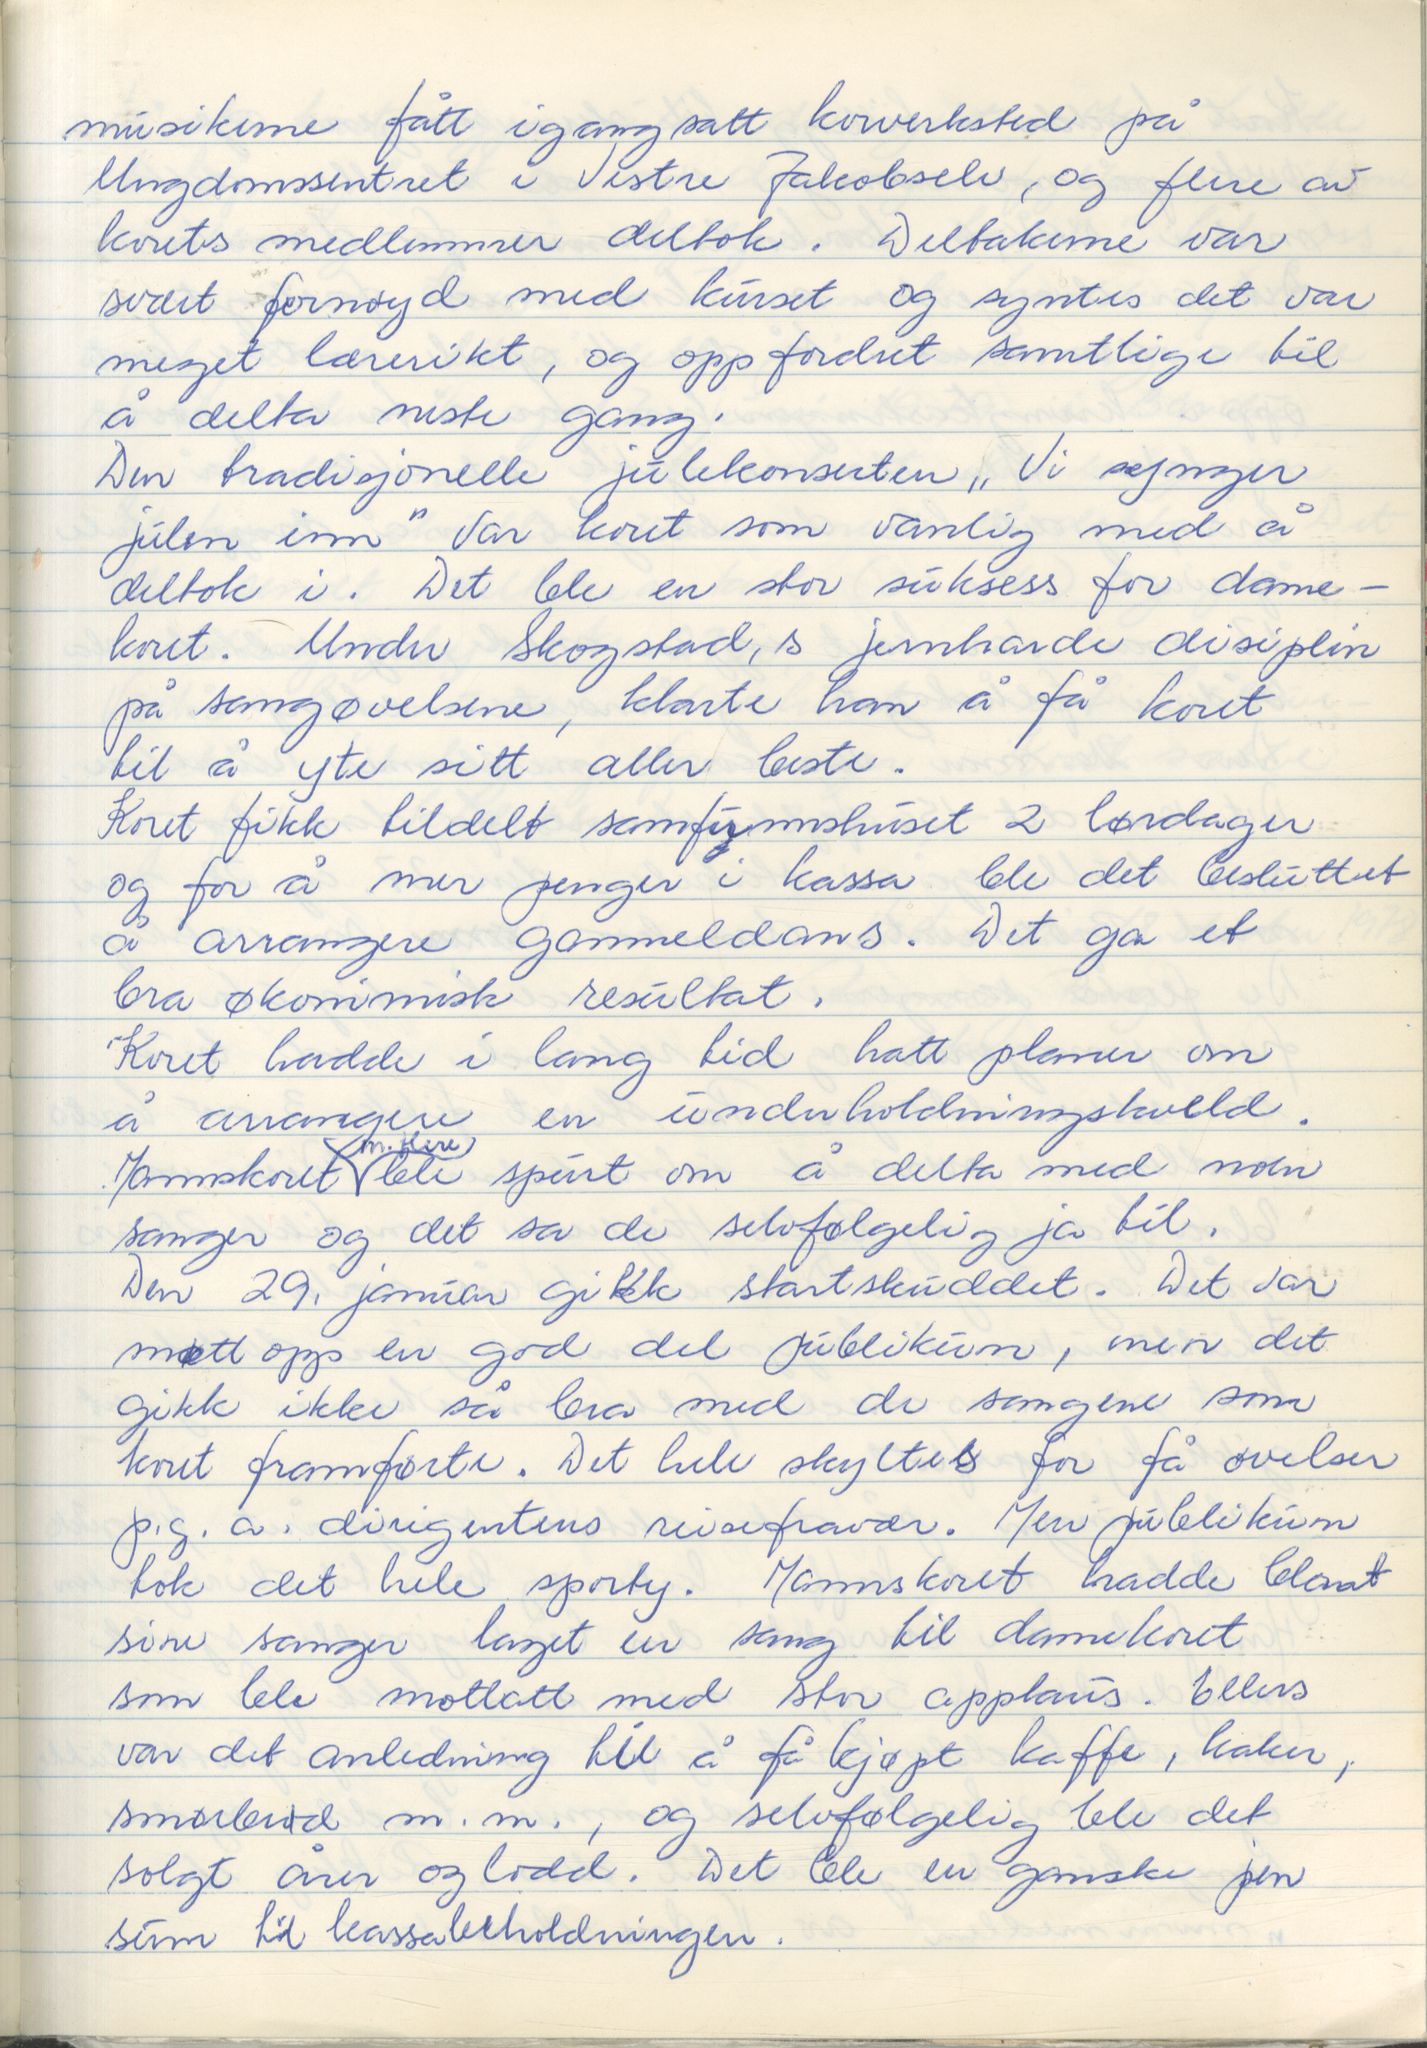 musikerne fått igangsatt korverksted på
Ungdomssentret i Vestre Jakobselv, og flere av
korets medlemmer deltok. Deltakerne var
svært fornøyd med kurset og syntes det var
meget lærerikt, og oppfordret samtlige til
å delta neste gang.
Den tradisjonelle julekonserten „Vi synger
julen inn" var koret som vanlig med å
deltok i. Det ble en stor suksess for dame-
koret. Under Skogstad,s jernharde disiplin
på sangøvelsene, klarte han å få koret
til å yte sitt aller beste.
Koret fikk tildelt samfunnshuset 2 lørdager
og for å mer penger i kassa ble det besluttet
å arrangere gammeldans. Det ga et
bra økonimisk resultat.
Koret hadde i lang tid hatt planer om
å arrangere en underholdningskveld.
Mannskoret m. flere ble spurt om å delta med noen
sanger og det sa de selvfølgelig ja til.
Den 29. januar gikk startskuddet. Det var
møtt opp en god del publikum, men det
gikk ikke så bra med de sangene som
koret framførte. Det hele skyltes for få øvelser
p.g.a. dirigentens reisefravær. Men publikum
tok det hele sporty. Mannskoret hadde blant
sine sanger laget en sang til damekoret
som ble mottatt med stor applaus. Ellers
var det anledning til å få kjøpt kaffe, kaker,
smørbrød m.m., og selvfølgelig ble det
solgt årer og lodd. Det ble en ganske pen
sum til kassabeholdningen.